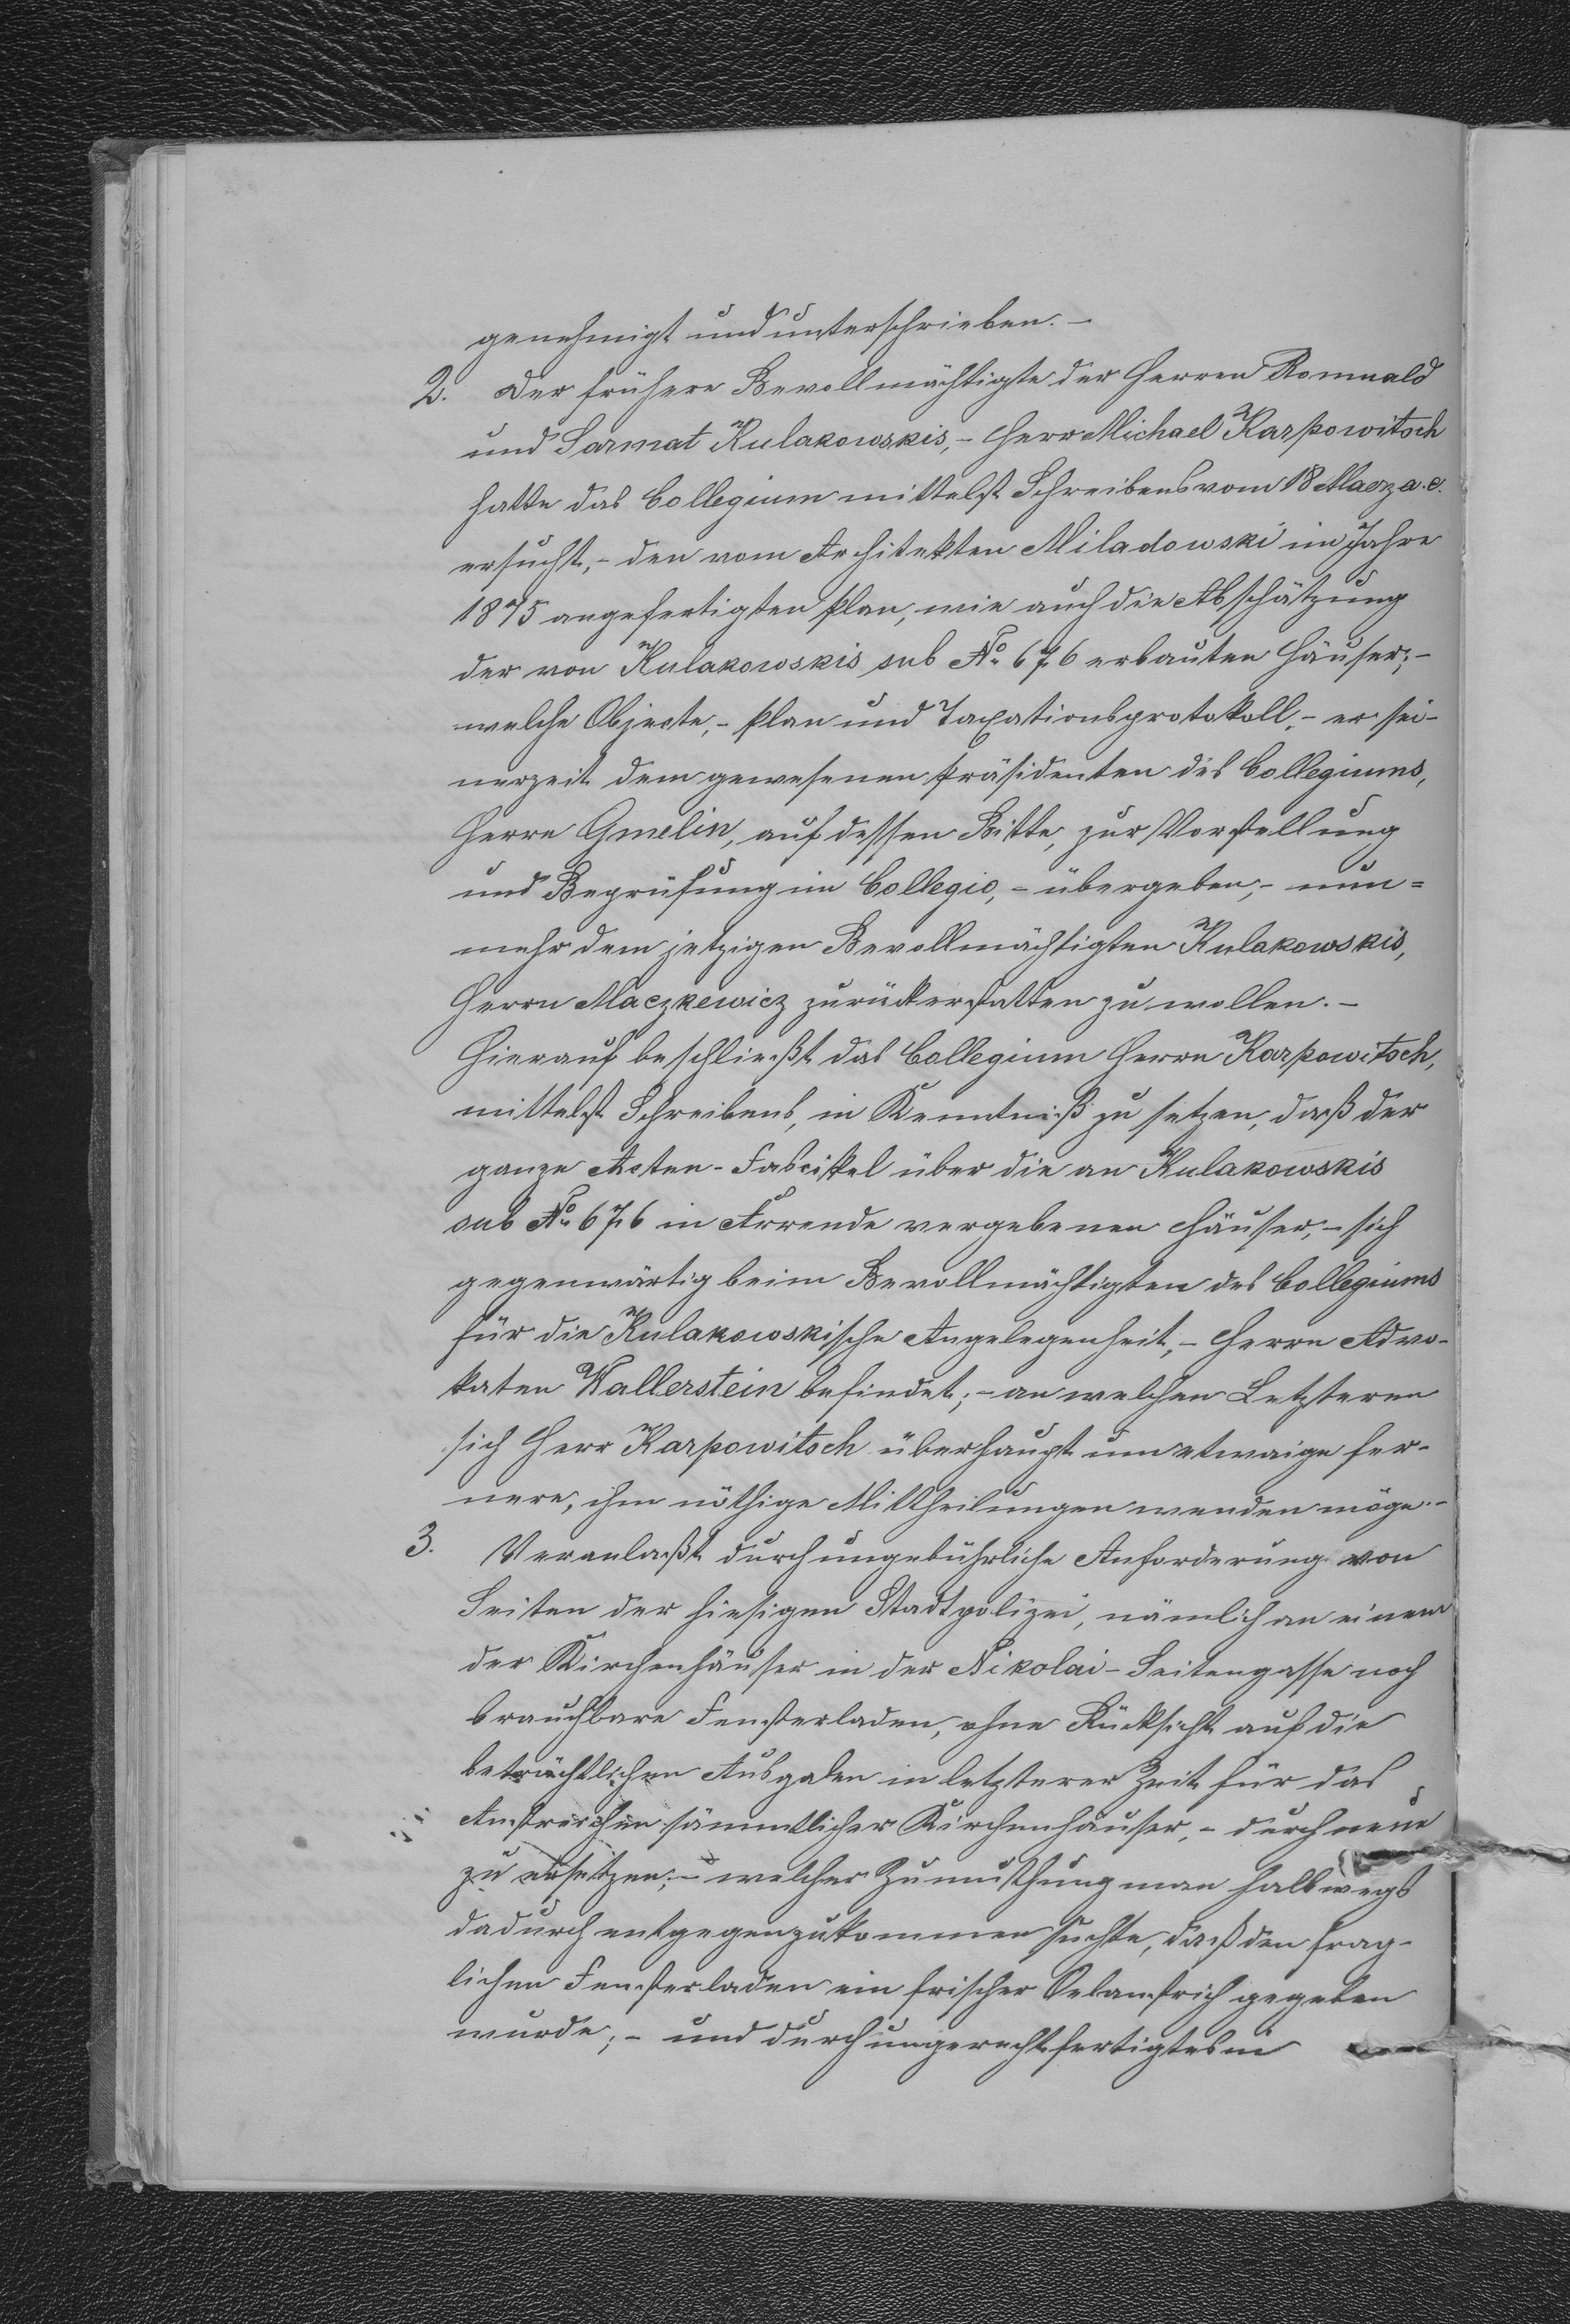 genehmigt und unterschrieben. –
2. Der frühere Bevollmächtigte der Herren Romuald
und Sarmat Kulakowskis, – Herr Michael Karpowitsch
hatte das Collegium mittelst Schreibens vom 18 Maerz a. c.
ersucht, – den vom Architekten Miladowski im Jahre
1875 angefertigten Plan, wie auch die Abschätzung
der von Kulakowskis sub № 676 erbauten Häuser; –
welche Objecte, – Plan und Taxationsprotokoll, – er sei-
nerzeit dem gewesenen Präsidenten des Collegiums,
Herrn Gmelin, auf dessen Bitte, zur Vorstellung
und Beprüfung im Collegio, – übergeben, – nun=
mehr dem jetzigen Bevollmächtigten Kulakowskis,
Herrn Maczkewicz zurückerstatten zu wollen. –
Hierauf beschließt das Collegium Herrn Karpowitsch,
mittelst Schreibens, in Kenntniß zu setzen, daß der
ganze Acten-Fascikel über die an Kulakowskis
sub № 676 in Arrende vergebenen Häuser, – sich
gegenwärtig beim Bevollmächtigten des Collegiums
für die Kulakowskische Angelegenheit, – Herrn Advo-
katen Wallerstein befindet; – an welchen Letzteren
sich Herr Karpowitsch überhaupt um etwaige fer-
nere, ihm nöthige Mittheilungen wenden möge. –
3. Veranlaßt durch ungebührliche Anforderung von
Seiten der hiesigen Stadtpolizei, nämlich an einem
der Kirchenhäuser in der Nikolai-Seitengasse noch
brauchbare Fensterladen, ohne Rücksicht auf die
beträchtlichen Ausgaben in letzterer Zeit für das
Anstreichen sämmtlicher Kirchenhäuser, – durch neue
zu ersetzen; – welcher Zumuthung man halbwegs
dadurch entgegenzukommen suchte, daß den frag-
lichen Fensterladen ein frischer Oelanstrich gegeben
wurde; – und durch ungerechtfertigtes in